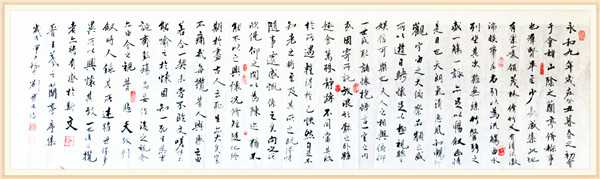 永和九年歲在癸丑暮春之初
于會稽山陰之蘭亭脩稧事
也群賢畢至少長咸集此地
有崇山峻領茂林脩竹又有清流激
湍暎帶左右引以為流觴曲水
列坐其次雖無絲竹管弦之
盛一觴一詠亦足以暢敘幽情
是日也天朗氣清惠風和暢仰
觀宇宙之大俯察品類之盛
所以遊目騁懷足以極視聽之
娛信可樂也夫人之相與俯仰
一世或取諸懷抱悟言一室之內
或因寄所託放浪形骸之外雖
趣舍萬殊靜躁不同當其欣
於所遇暫得於己快然自足不
知老之將至及其所之既惓情
隨事遷感慨係之矣向之所
欣俛仰之間以為陳迹猶不
能不以之興懷況脩短隨化終
期於盡古人云死生亦大矣豈
不痛哉每攬昔人興感之由
若合一契未嘗不臨文嗟悼不
能喻之於懷固知一死生為虛
誕齊彭殤為妄作後之視今
亦由今之視昔悲夫故列
敘時人錄其所述雖世殊事
異所以興懷其致一也後之攬
者亦將有感於斯文
晉王羲之蘭亭序